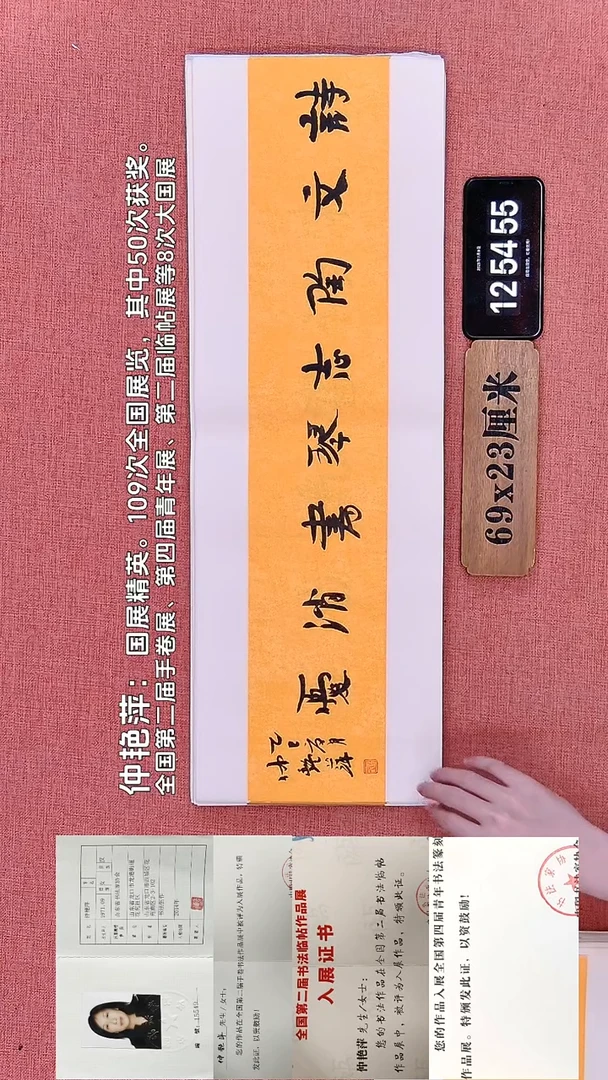 仲艳萍：国展精英。109次全国展览，其中50次获奖。
全国第二届手卷展、第四届青年展、第二届临帖展等8次大国展
詩文陶志琴書消憂
乙巳
12 54 55
69x23厘米
仲艳萍 先生/女士：
发此证，以资鼓励！
全国第二届书法临帖作品展
入展证书
仲艳萍 先生/女士：
您的书法作品在全国第二届书法临帖
作品展中，被评为入展作品，特颁此证。
您的作品入展全国第四届青年书法篆刻
作品展。特颁发此证，以资鼓励！